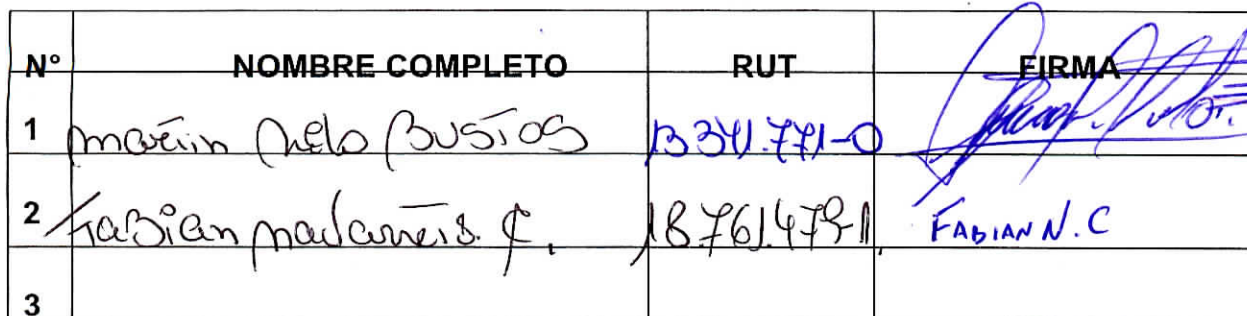 N° NOMBRE COMPLETO RUT FIRMA
1 Martin Melo Bustos 13.341.771-0
2 Fabian C. 18.761.479-1 FABIAN N. C
3